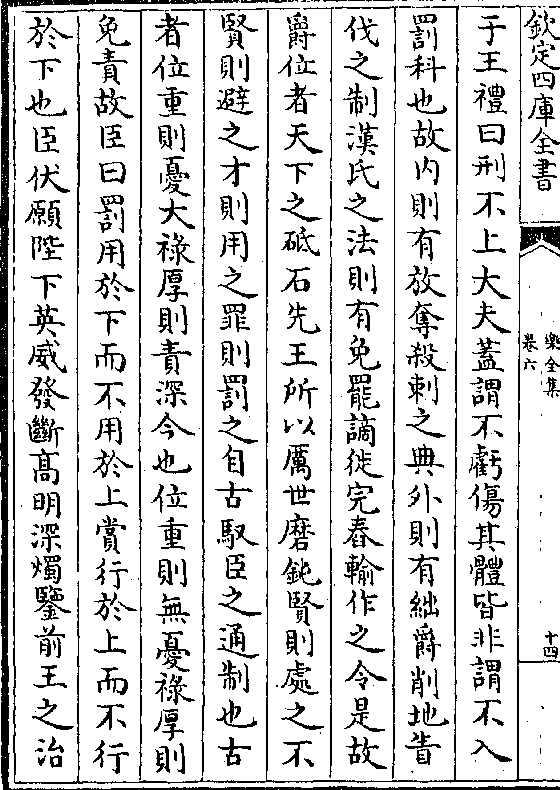 欽定四庫全書
樂全集
卷六
十四
于王禮曰刑不上大夫蓋謂不虧傷其體皆非謂不入
罰科也故内則有放奪殺刺之典外則有絀爵削地眚
伐之制漢氏之法則有免罷謫徙完舂輸作之令是故
爵位者天下之砥石先王所以厲世磨鈍賢則處之不
賢則避之才則用之罪則罰之自古馭臣之通制也古
者位重則憂大祿厚則責深今也位重則無憂祿厚則
免責故臣曰罰用於下而不用於上賞行於上而不行
於下也臣伏願陛下英威發斷高明深燭鑒前王之治